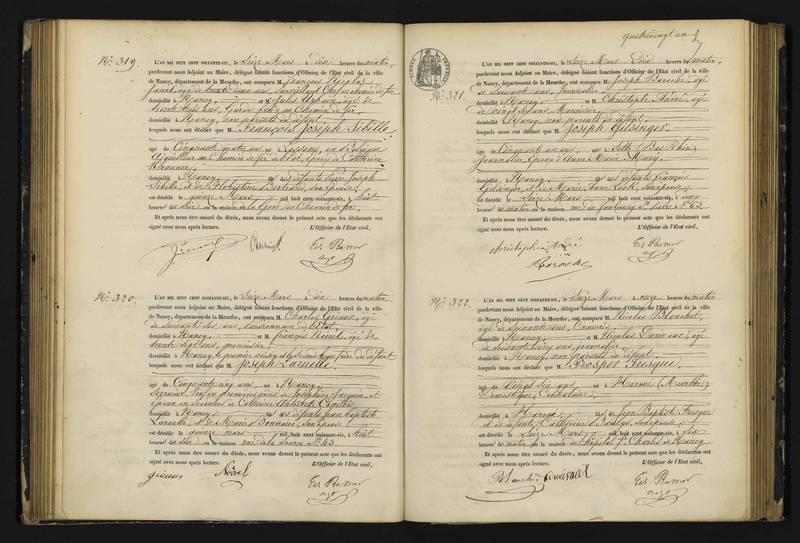 No. 319.
L'AN MIL HUIT CENT SOIXANTE-SIX, le Seize Mars Dix heures du matin
pardevant nous Adjoint au Maire, délégué faisant fonctions d'Officier de l'Etat civil de la ville
de Nancy, département de la Meurthe, ont comparu M. François Nicolas
âgé de trente deux ans, Surveillant Chef au chemin de fer
domicilié à Nancy, et M. Jules âgé de
trente trois ans, Garde au Chemin de fer,
domicilié à Nancy, non parents du défunt,
lesquels nous ont déclaré que M. François Joseph Sibille,
âgé de Cinquante quatre ans né à en Belgique
Aiguilleur au Chemin de fer de l'Est, époux de Catherine
domicilié à Nancy, fils de défunts Pierre Joseph
Sibille, et de son épouse,
est décédé le quinze Mars mil huit cent soixante-six, à huit
heures du soir en la maison à la Gare du Chemin de fer,
Et après nous être assuré du décès, nous avons dressé le présent acte que les déclarants ont
signé avec nous après lecture. L'Officier de l'Etat civil,
No. 320.
L'AN MIL HUIT CENT SOIXANTE-SIX, le Seize Mars Dix heures du matin
pardevant nous Adjoint au Maire, délégué faisant fonctions d'Officier de l'Etat civil de la ville
de Nancy, département de la Meurthe, ont comparu M. Charles âgé
de Soixante six ans,
domicilié à Nancy, et M. François Noirel, âgé de
trente sept ans, menuisier,
domicilié à Nancy, le premier voisin et le second beau frère du défunt
lesquels nous ont déclaré que M. Joseph Laruelle,
âgé de Cinquante cinq ans, né à Nancy,
Serrurier, veuf en premières noces de Joséphine et
époux en secondes de Catherine
domicilié à Nancy, fils de défunts Jean Baptiste
Laruelle, et de Marie Bonnaire, son épouse,
est décédé le quinze Mars mil huit cent soixante-six, à huit
heures du soir en la maison rue de la Source No. 43
Et après nous être assuré du décès, nous avons dressé le présent acte que les déclarants ont
signé avec nous après lecture. L'Officier de l'Etat civil,
Noirel
quatrevingt un
No. 321.
L'AN MIL HUIT CENT SOIXANTE-SIX, le Seize Mars Dix heures du matin,
pardevant nous Adjoint au Maire, délégué faisant fonctions d'Officier de l'Etat civil de la ville
de Nancy, département de la Meurthe, ont comparu M. Joseph Baroche, âgé
de Soixante ans, Journalier,
domicilié à Nancy, et M. Christophe André, âgé
de ans, Menuisier,
domicilié à Nancy, non parents du défunt,
lesquels nous ont déclaré que M. Joseph Geisinger,
âgé de Cinquante un ans, né à (Bas Rhin)
Journalier, époux d'Anne Marie
domicilié à Nancy, fils de défunts François
Geisinger, et de Marie Anne son épouse,
est décédé le Seize Mars mil huit cent soixante-six, à
heures du matin en la maison rue du faubourg St. Pierre No. 63
Et après nous être assuré du décès, nous avons dressé le présent acte que les déclarants ont
signé avec nous après lecture. L'Officier de l'Etat civil,
Christophe André
Baroche
No. 322.
L'AN MIL HUIT CENT SOIXANTE-SIX, le Seize Mars onze heures du matin
pardevant nous Adjoint au Maire, délégué faisant fonctions d'Officier de l'Etat civil de la ville
de Nancy, département de la Meurthe, ont comparu M. Nicolas Blanchet,
âgé de Soixante ans,
domicilié à Nancy, et M. Nicolas âgé
de Soixante cinq ans, journalier,
domicilié à Nancy, non parents du défunt,
lesquels nous ont déclaré que M. Prosper Fresque,
âgé de Vingt six ans, né à (Meurthe)
Domestique, Célibataire,
domicilié à fils de Jean Baptiste Fresque
et de défunte Catherine son épouse,
est décédé le Seize Mars mil huit cent soixante-six, à Six
heures du matin en la maison à l'hôpital St. Charles de Nancy
Et après nous être assuré du décès, nous avons dressé le présent acte que les déclarants ont
signé avec nous après lecture. L'Officier de l'Etat civil,
Blanchet